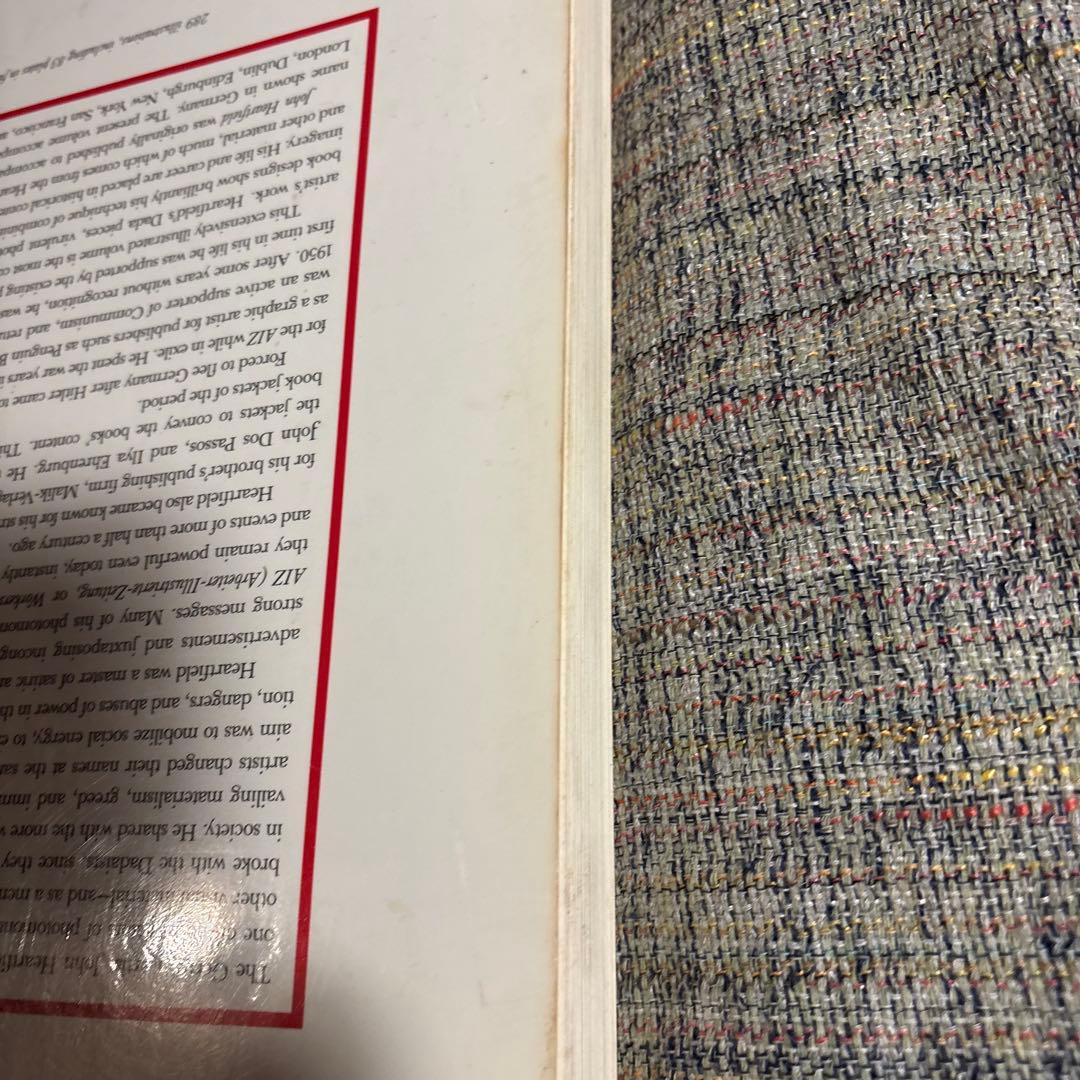 The German artist John Heartfi
one of photomon
other visual material—and as a mem
broke with the Dadaists, since they
in society. He shared with the more
vailing materialism, greed, and imm
artists changed their names at the sa
aim was to mobilize social energy, to e
tion, dangers, and abuses of power in th
Heartfield was a master of satiric a
advertisements and juxtaposing incong
strong messages. Many of his photomon
AIZ (Arbeiter-Illustrierte-Zeitung, or Workers
they remain powerful even today, instantly
and events of more than half a century ago.
Heartfield also became known for his str
for his brother's publishing firm, Malik-Verlag
John Dos Passos, and Ilya Ehrenburg. He
the jackets to convey the books' content. Thi
book jackets of the period.
Forced to flee Germany after Hitler came to
for the AIZ while in exile. He spent the war years i
as a graphic artist for publishers such as Penguin B
was an active supporter of Communism, and retu
1950. After some years without recognition, he was
first time in his life he was supported by the existing p
This extensively illustrated volume is the most co
artist's work. Heartfield's Dada pieces, virulent phot
book designs show brilliantly his technique of combinin
imagery. His life and career are placed in historical cont
and other material, much of which comes from the Hear
John Heartfield was originally published to accompa
name shown in Germany. The present volume accomp
London, Dublin, Edinburgh, New York, San Francisco, a
289 illustrations, including 83 plates in